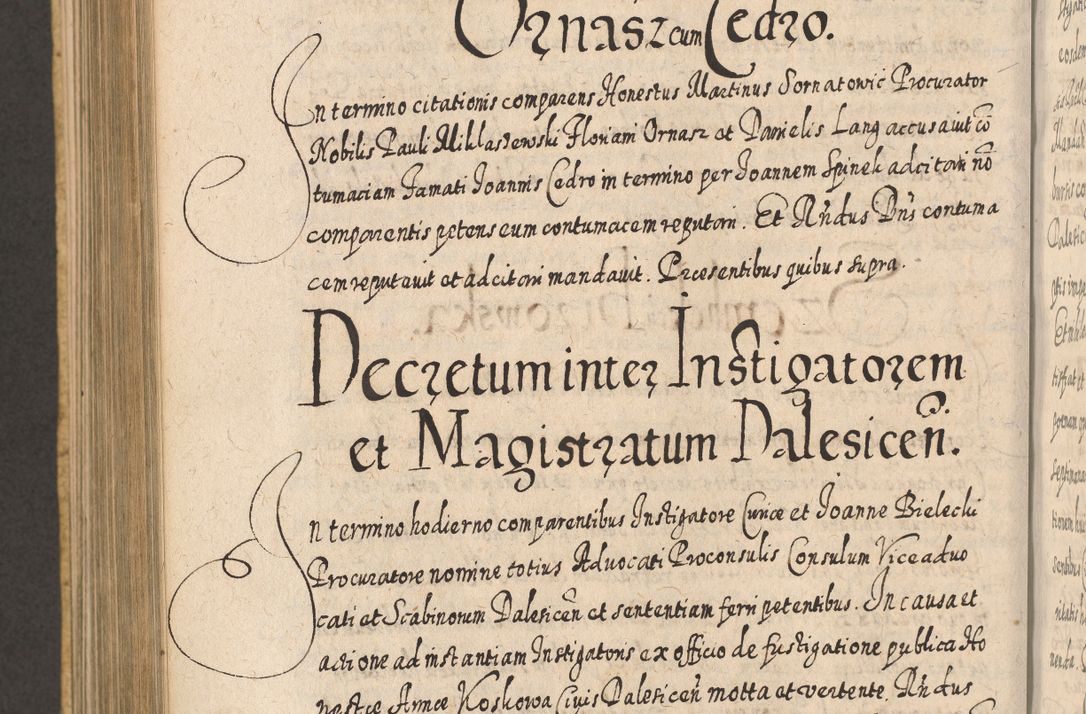 Ornasz cum Cedro.
In termino citationis comparens Honestus Martinus Sornatowic Procurator
Nobilis Pauli Miklaszewski Floriani Ornasz et Danielis Lang accusavit cō
tumaciam Famati Joannis Cedro in termino per Joannem Spinek adcitari nō
comparentis petens eum contumacem reputari. Et Rñdus Dñs contuma
cem reputavit et adcitari mandavit. Præsentibus quibus supra.
Decretum inter Instigatorem
et Magistratum Daleſiceñ.
In termino hodierno comparentibus Instigatore Curiæ et Joanne Bielecki
Procuratore nomine totius Advocati Proconsulis Consulum Viceadvo
cati et Scabinorum Daleſiceñ et sententiam ferri petentibus. In causa et
actione ad instantiam Instigatoris ex officio de fustigatione publica Ho
nestæ Annæ Koskowa Civis Daleſiceñ motta et vertente. Rñdus